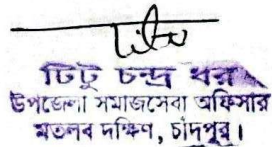 টিটু চন্দ্র ধর
উপজেলা সমাজসেবা অফিসার
মতলব দক্ষিণ, চাঁদপুর।